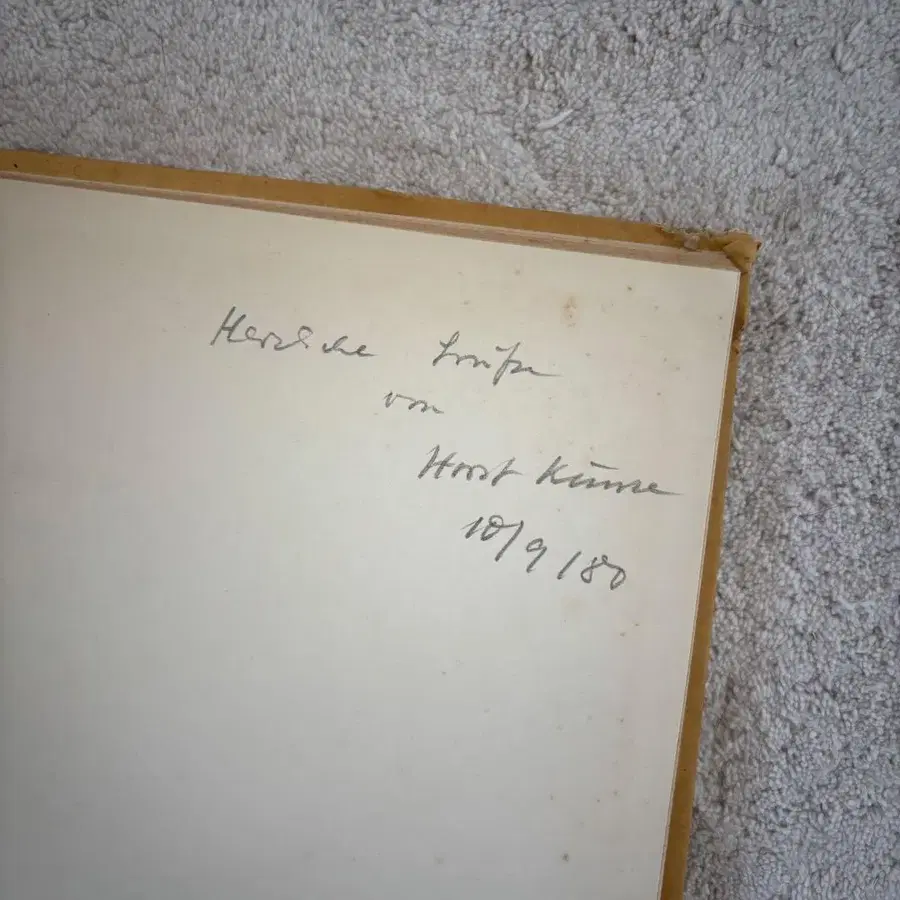 Herzliche Grüße
von
Horst Kunze
10/9/80